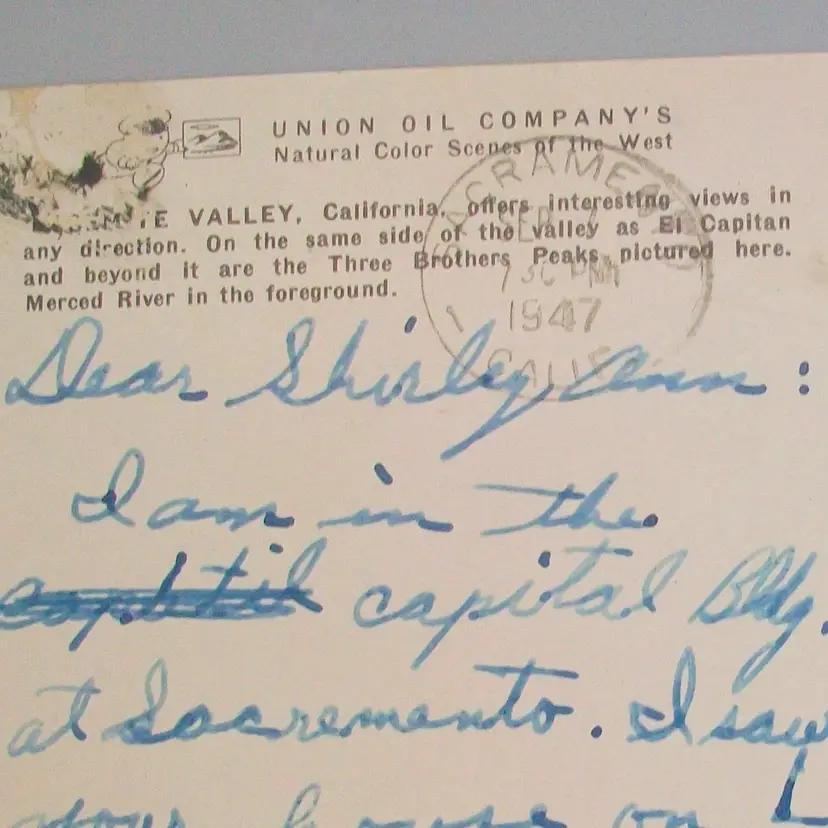 UNION OIL COMPANY'S
Natural Color Scenes of the West
VALLEY, California, offers interesting views in
any direction. On the same side of the valley as El Capitan
and beyond it are the Three Brothers Peaks, pictured here.
Merced River in the foreground.
1947
CALIF
Dear Shirley Ann :
I am in the
capital Bldg.
at Sacremento. I saw
your house on